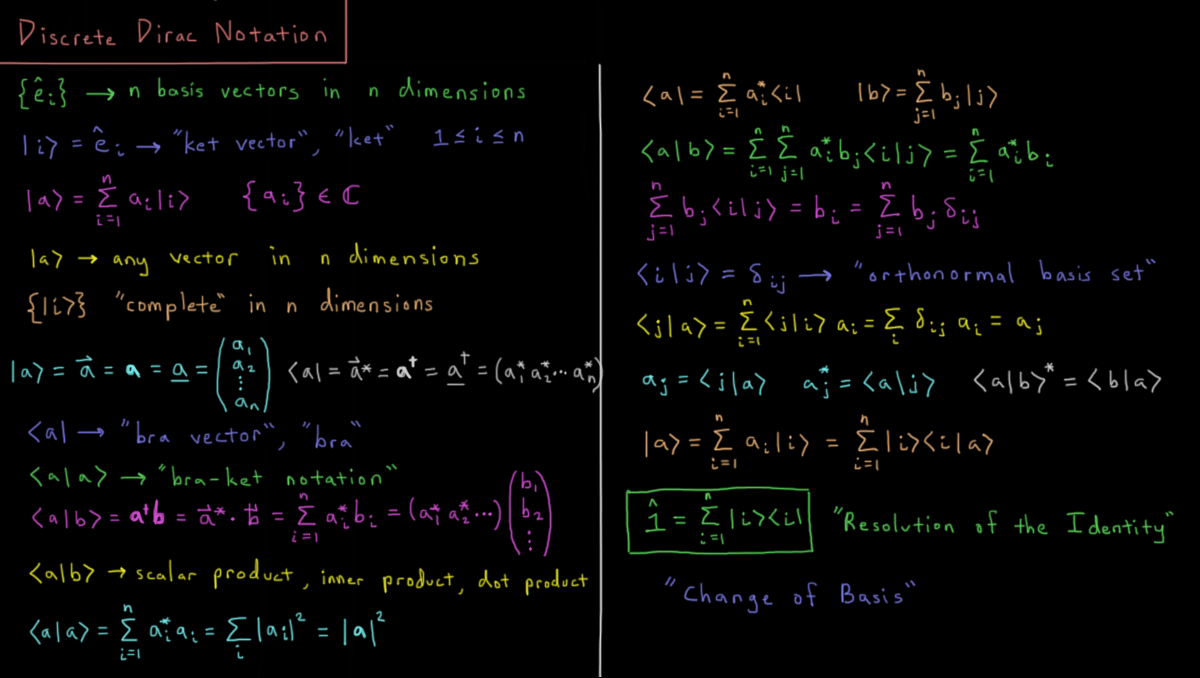 Discrete Dirac Notation
{ê_i} → n basis vectors in n dimensions
|i⟩ = ê_i → "ket vector", "ket" 1 ≤ i ≤ n
|a⟩ = Σ_{i=1}^{n} a_i|i⟩ {a_i} ∈ ℂ
|a⟩ → any vector in n dimensions
{|i⟩} "complete" in n dimensions
|a⟩ = a⃗ = 𝐚 = a̲ = (a_1 a_2 ⋮ a_n) ⟨a| = a⃗* = 𝐚† = a̲† = (a_1* a_2* ⋯ a_n*)
⟨a| → "bra vector", "bra"
⟨a|a⟩ → "bra-ket notation"
⟨a|b⟩ = 𝐚†𝐛 = a⃗* · b⃗ = Σ_{i=1}^{n} a_i* b_i = (a_1* a_2* ⋯) (b_1 b_2 ⋮)
⟨a|b⟩ → scalar product, inner product, dot product
⟨a|a⟩ = Σ_{i=1}^{n} a_i* a_i = Σ_i |a_i|² = |𝐚|²
⟨a| = Σ_{i=1}^{n} a_i*⟨i| |b⟩ = Σ_{j=1}^{n} b_j|j⟩
⟨a|b⟩ = Σ_{i=1}^{n} Σ_{j=1}^{n} a_i* b_j⟨i|j⟩ = Σ_{i=1}^{n} a_i* b_i
Σ_{j=1}^{n} b_j⟨i|j⟩ = b_i = Σ_{j=1}^{n} b_j δ_{ij}
⟨i|j⟩ = δ_{ij} → "orthonormal basis set"
⟨j|a⟩ = Σ_{i=1}^{n} ⟨j|i⟩ a_i = Σ_i δ_{ij} a_i = a_j
a_j = ⟨j|a⟩ a_j* = ⟨a|j⟩ ⟨a|b⟩* = ⟨b|a⟩
|a⟩ = Σ_{i=1}^{n} a_i|i⟩ = Σ_{i=1}^{n} |i⟩⟨i|a⟩
1̂ = Σ_{i=1}^{n} |i⟩⟨i| "Resolution of the Identity"
"Change of Basis"